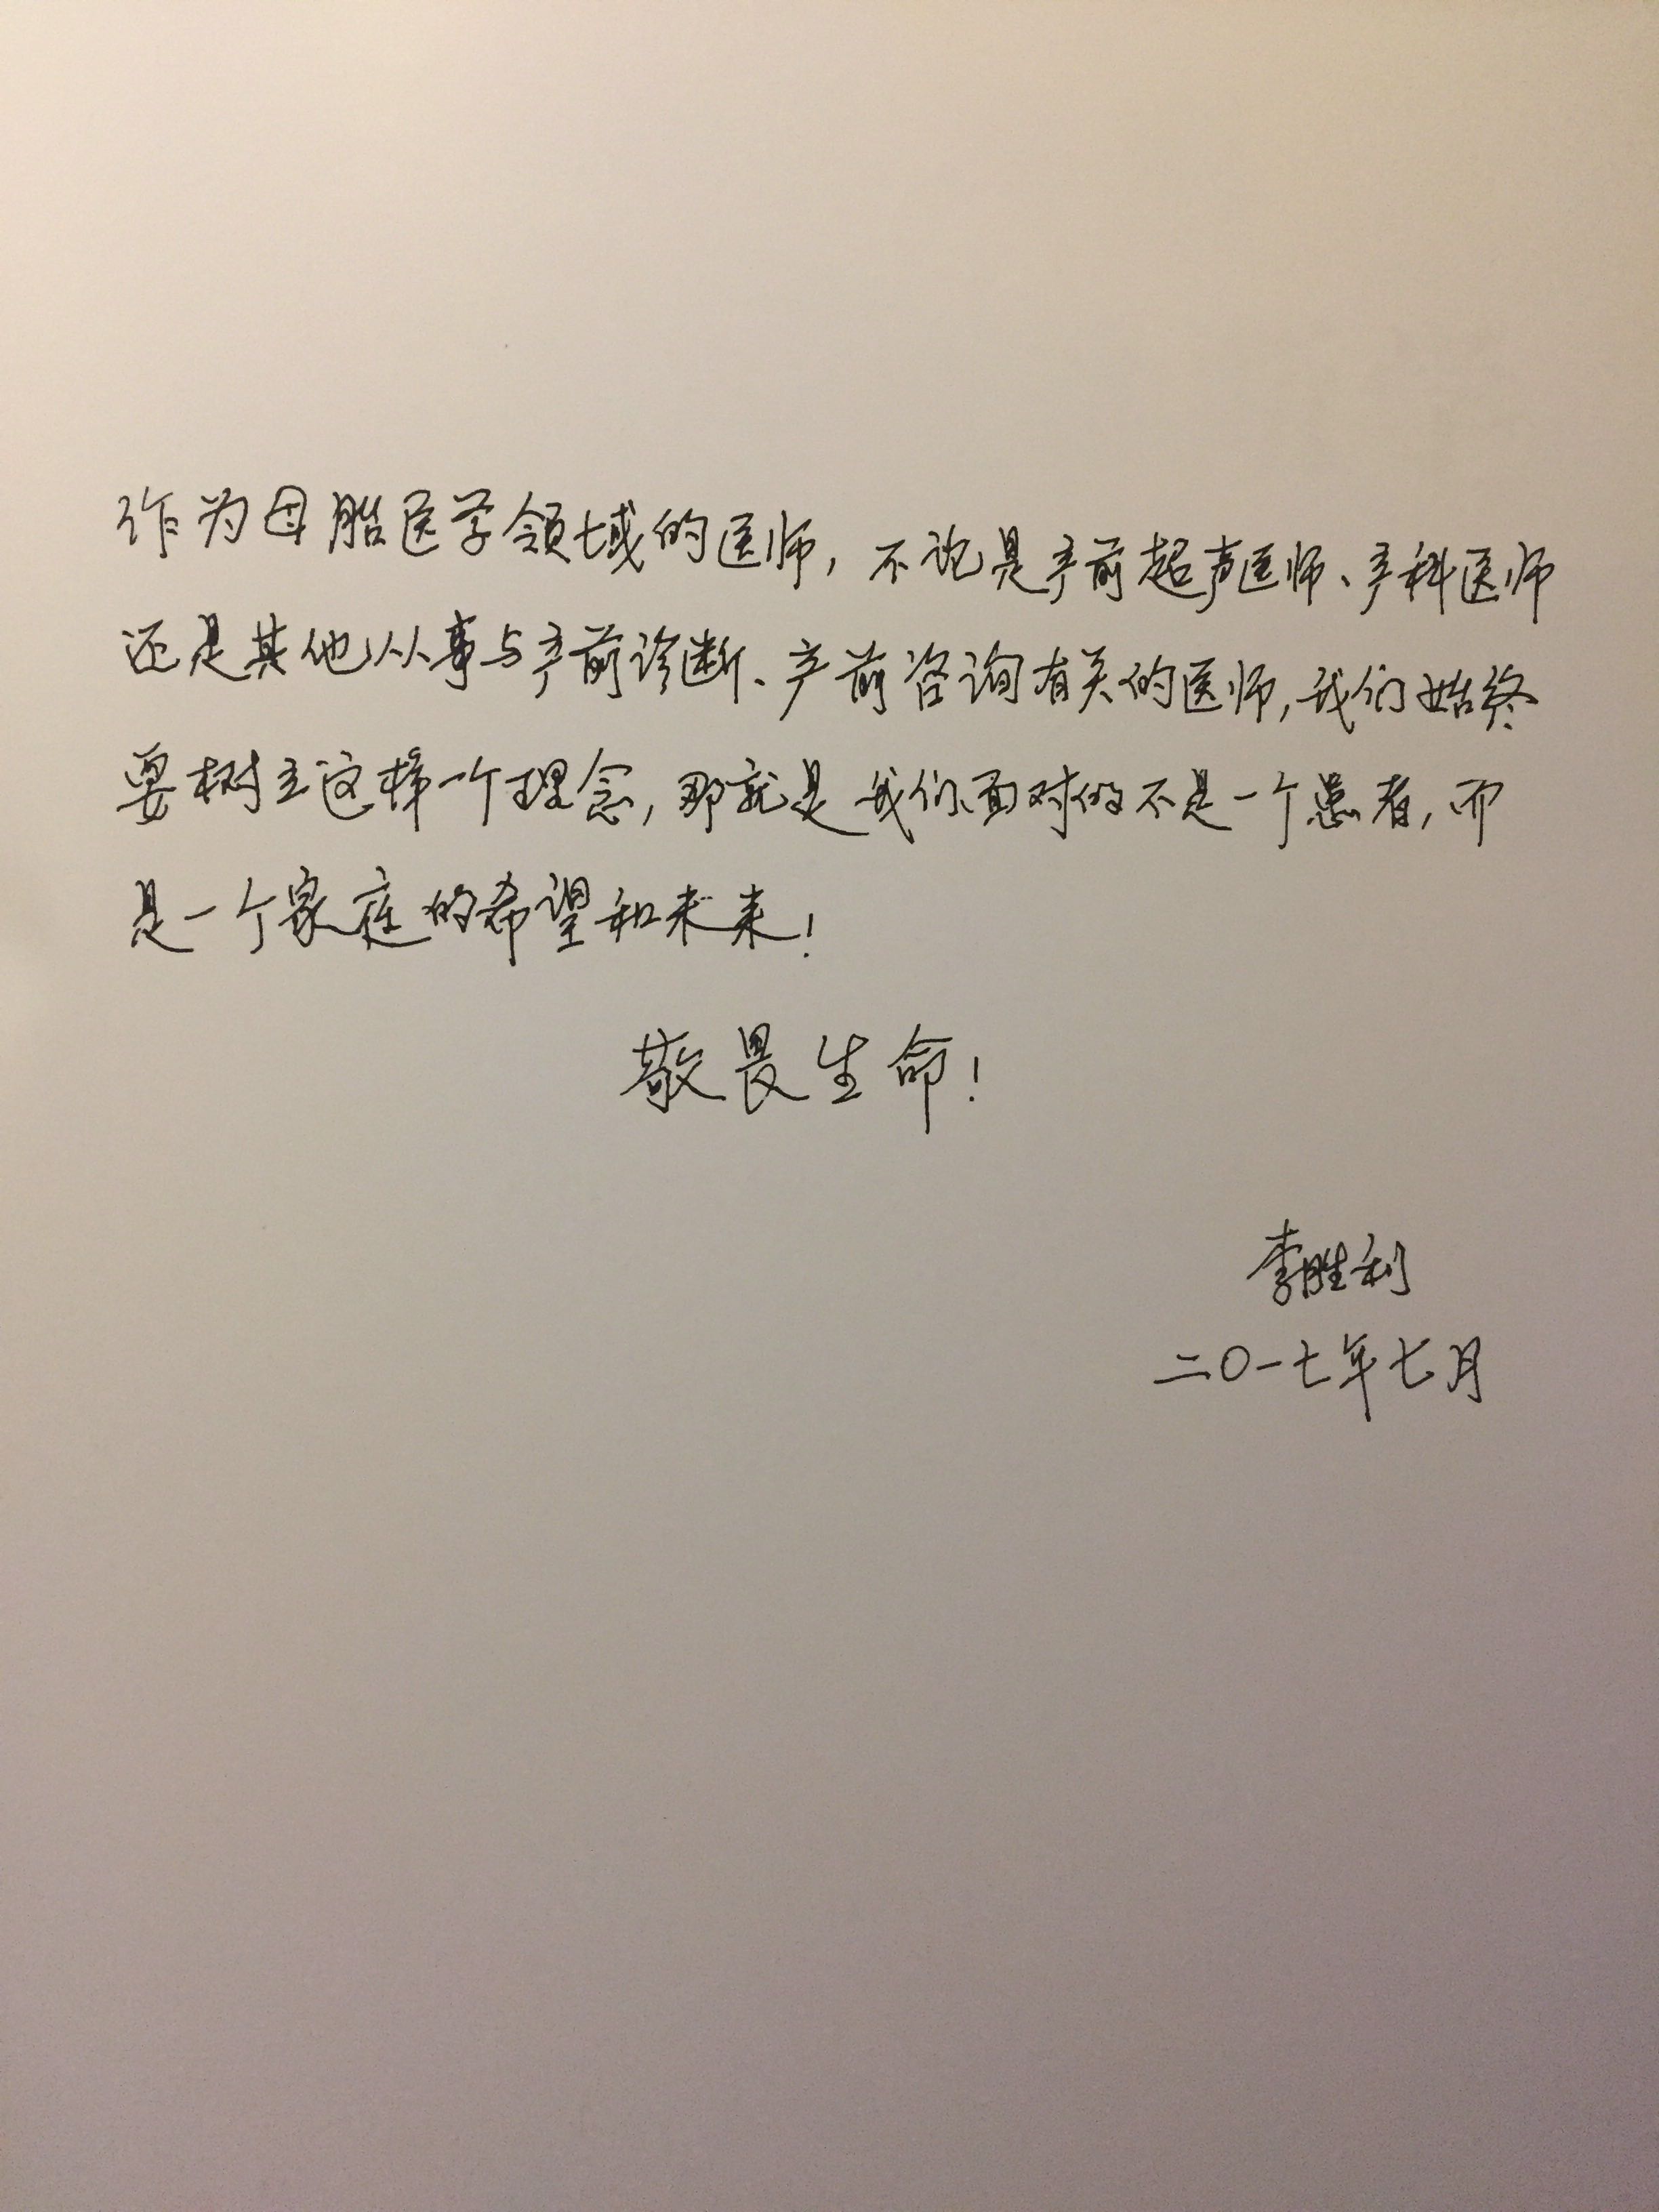 作为母胎医学领域的医师，不论是产前超声医师、产科医师
还是其他从事与产前诊断、产前咨询有关的医师，我们始终
要树立这样一个理念，那就是我们面对的不是一个患者，而
是一个家庭的希望和未来！
敬畏生命！
李胜利
二〇一七年七月